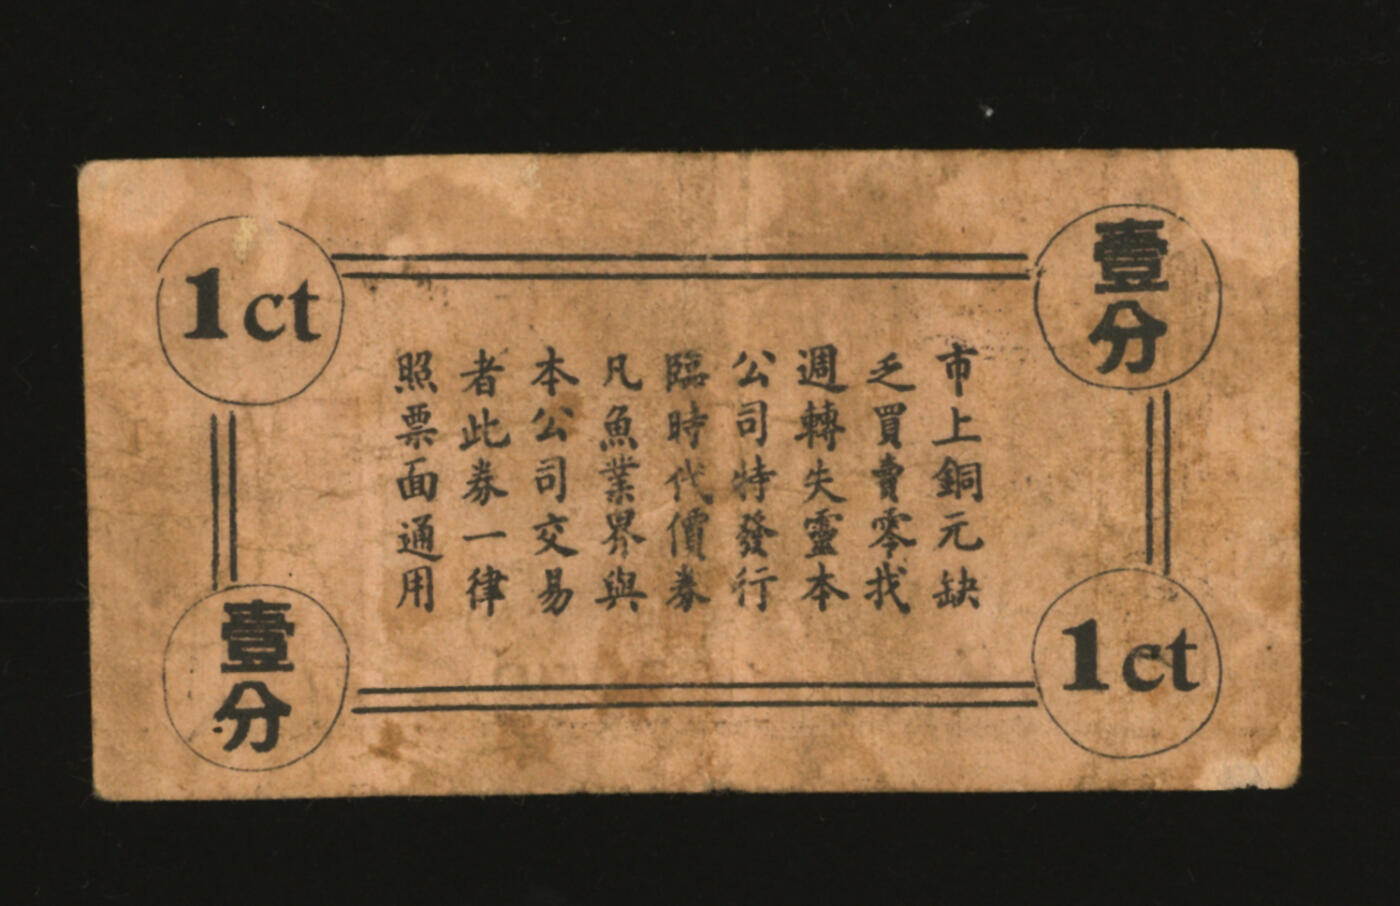 1ct
壹分
市上銅元缺
乏買賣零找
週轉失靈本
公司特發行
臨時代價券
凡魚業界與
本公司交易
者此券一律
照票面通用
壹分
1ct